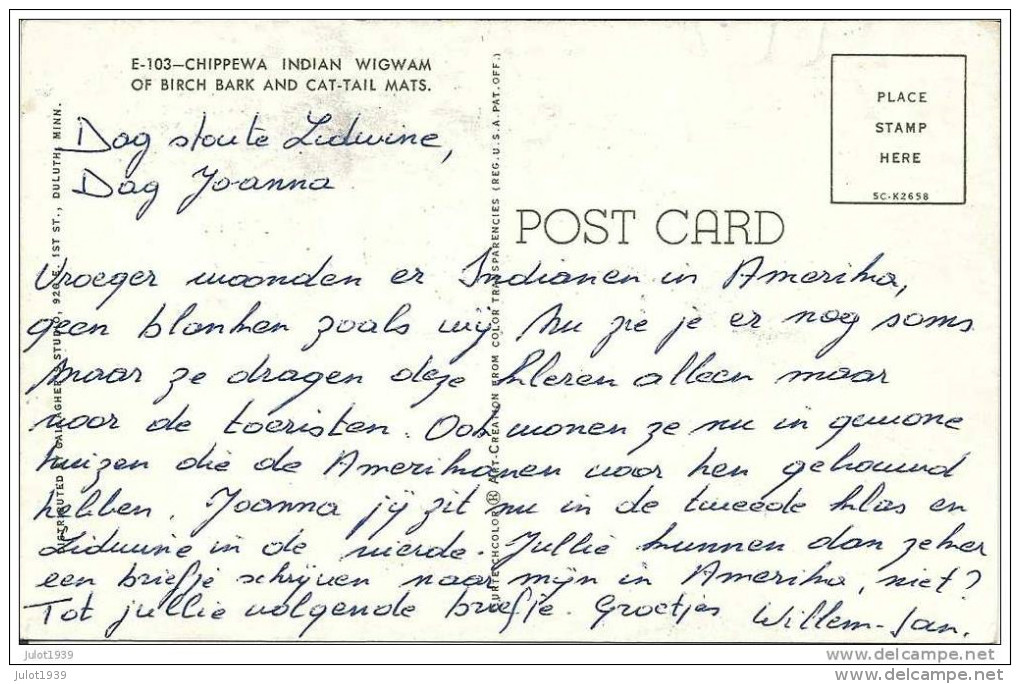 E-103—CHIPPEWA INDIAN WIGWAM
OF BIRCH BARK AND CAT-TAIL MATS.
PLACE
STAMP
HERE
SC-K2658
POST CARD
DISTRIBUTED BY GALLAGHER'S STUDIO, 920 E. 1ST ST., DULUTH, MINN.
CURTEICHCOLOR ® ART-CREATION FROM COLOR TRANSPARENCIES (REG. U.S.A. PAT. OFF.)
Dag stoute Lidwine,
Dag Joanna
Vroeger woonden er Indianen in Amerika,
geen blanken zoals wij Nu zie je er nog soms
maar ze dragen deze kleren alleen maar
voor de toeristen. Ook wonen ze nu in gewone
huizen die de Amerikanen voor hen gebouwd
hebben. Joanna jij zit nu in de tweede klas en
Lidwine in de vierde. Jullie kunnen dan zeker
een briefje schrijven naar mijn in Amerika, niet?
Tot jullie volgende briefje. Groetjes Willem-Jan.
julot1939
julot1939
delcampe.net
delcampe.net